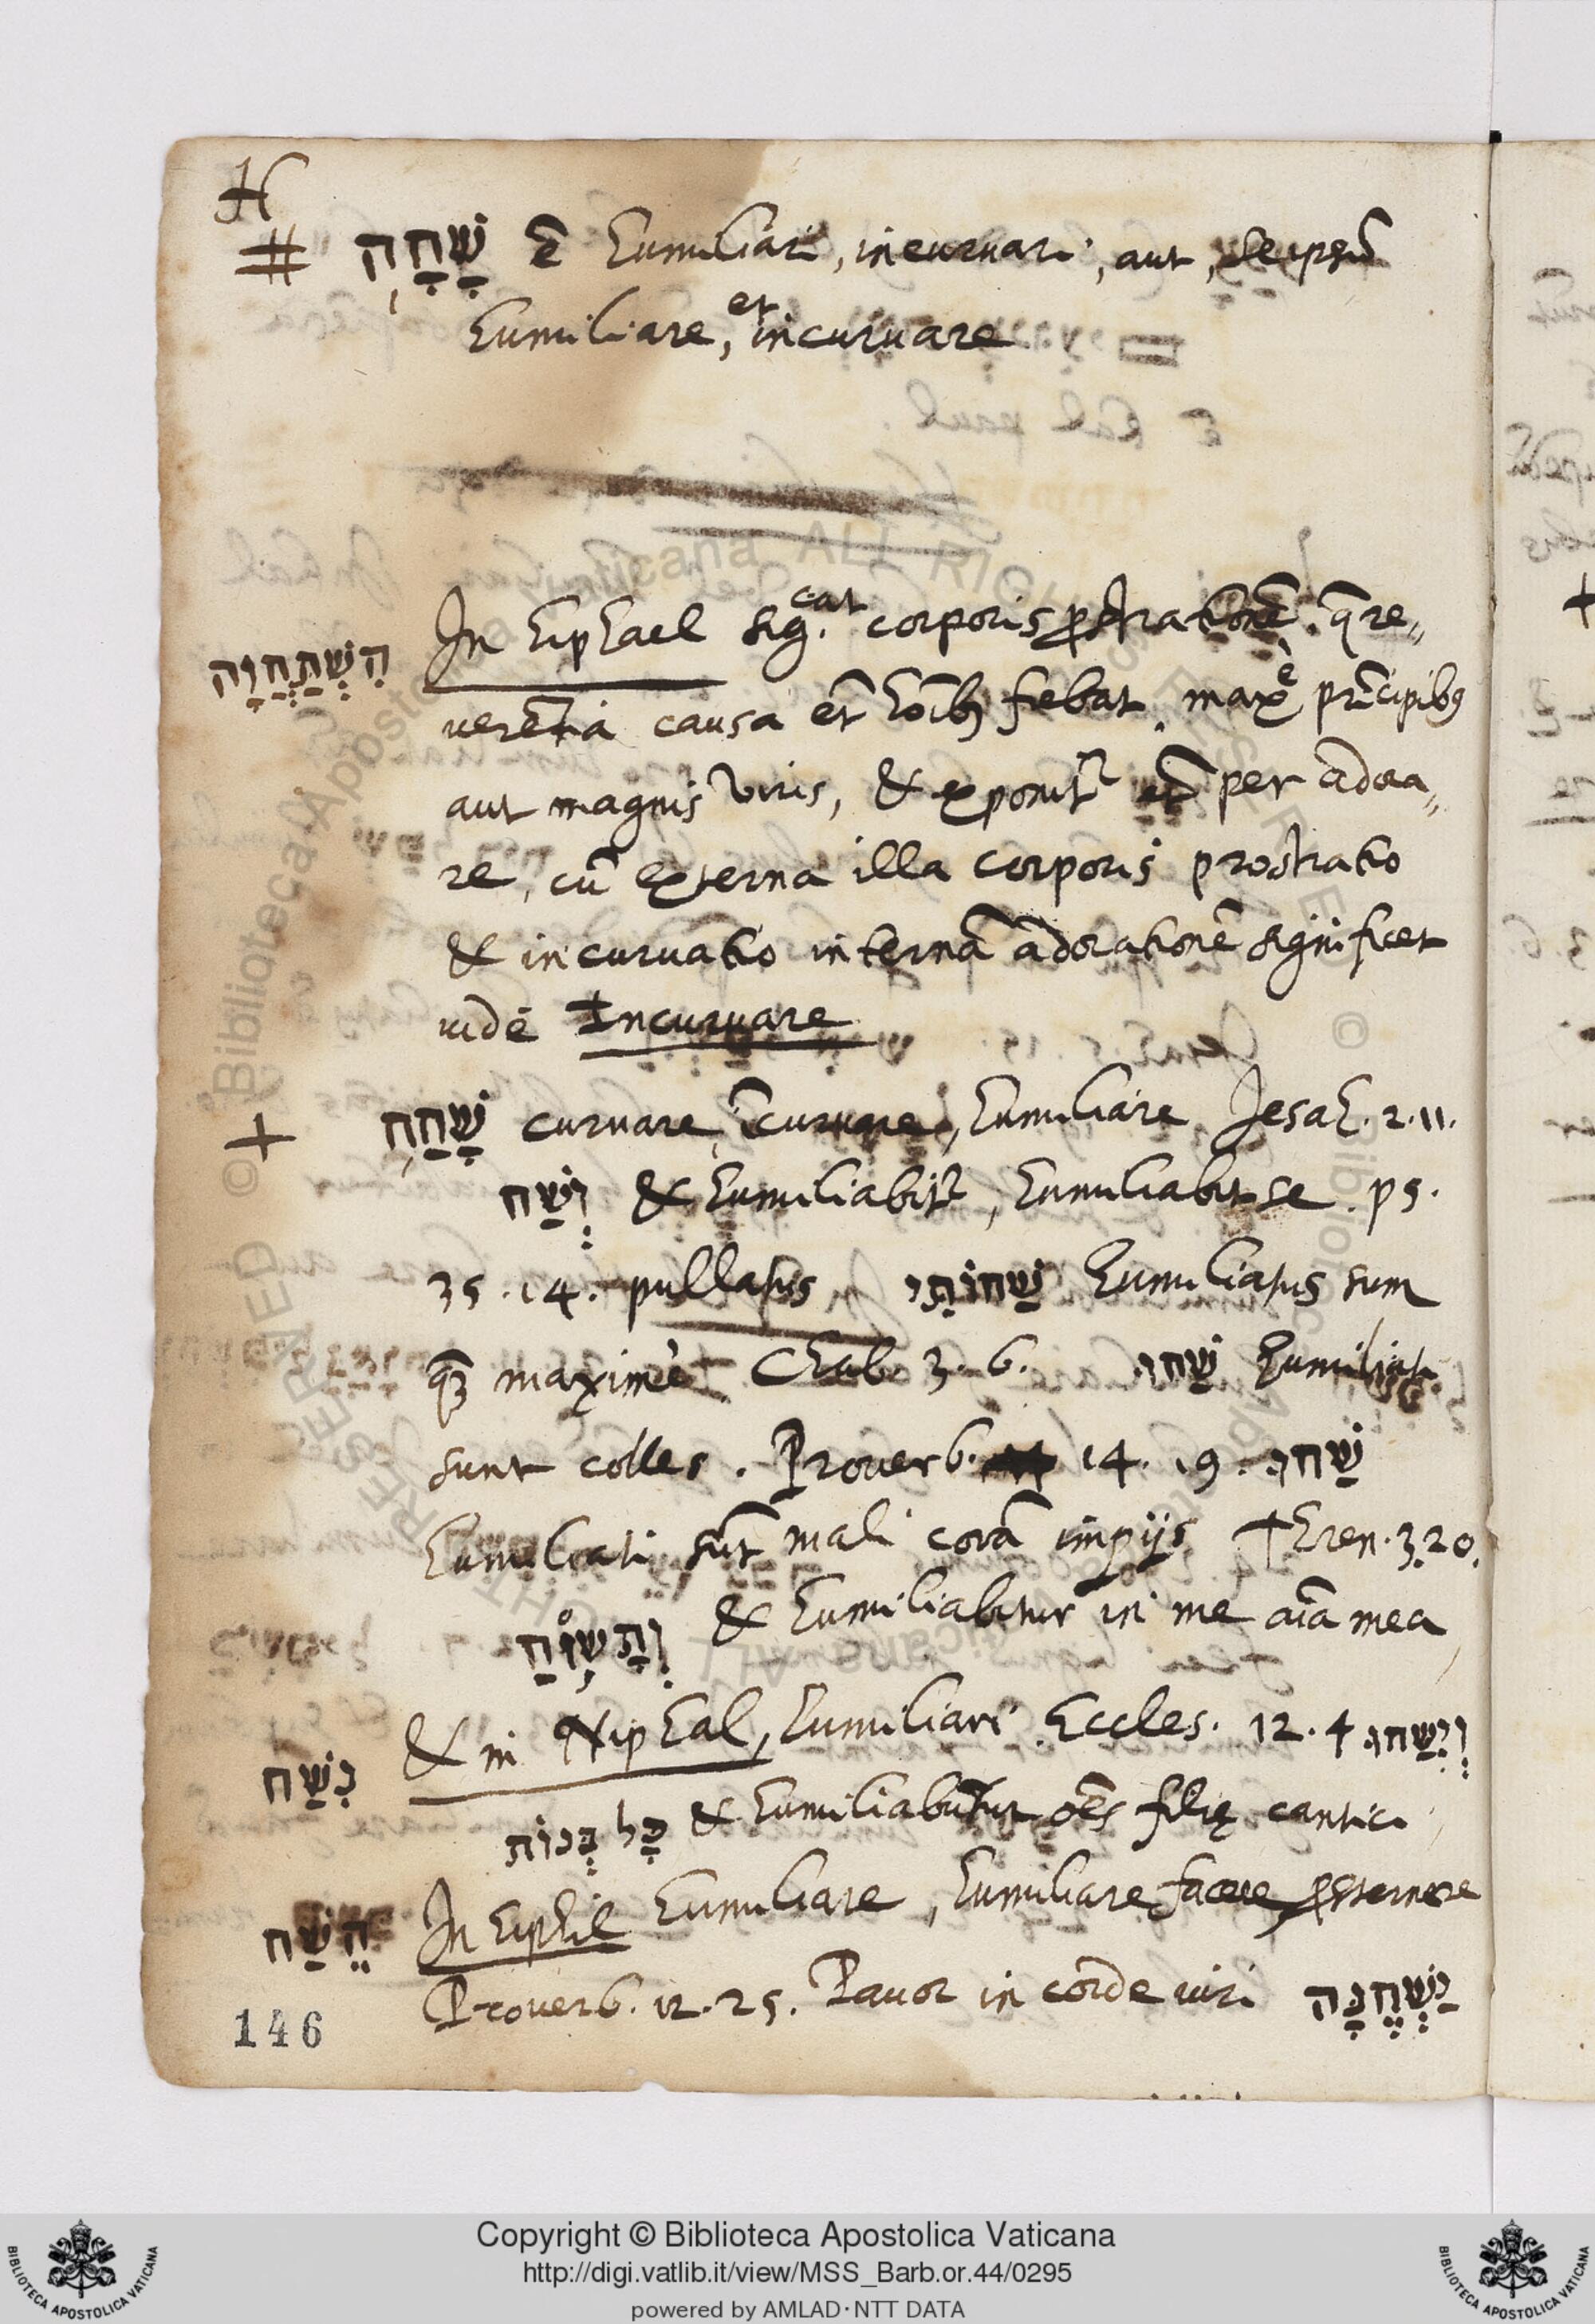 H
שָׁחָה ē humiliari, incurvari, aut, seipsū
humiliare, et incurvare
הִשְׁתַּחֲוָה In hiphael sig.cat corporis ꝓstrationē. q̄ re„
verētia causa et̄ hoīb9 fiebat. maxe prīcipib9
aut magnis viris, & exponit͛ et̄ per adora„
re, cū externa illa corporis prostratio
& incurvatio internā adorationē significet
vide Incurvare
+ שָׁחַח curvare, īcurvare, humiliare Jesah. 2.11.
וְשַׁח & humiliabit͛, humiliabit se. ps.
35.14. pullatus שַׁחוֹתִי humiliatus sum
maximè Chab. 3.6. שַׁחוּ humiliati
sunt colles. Proverb. 14.19. שַׁחוּ
humiliati sūt mali corā impijs Thren. 3.20.
וְתָשׁוֹחַ & humiliabitur in me aīa mea
נִשַּׁח & in Niphal, humiliari. Eccles. 12.4 וְיִשַּׁחוּ
כָּל בְּנוֹת & humiliabūtur oēs filię cantici
הֵשַׁח In hiphil humiliare, humiliare facere ꝓsternere
Proverb. 12.25. Pavor in corde viri יַשְׁחֶנָּה
146
© Biblioteca Apostolica Vaticana ALL RIGHTS RESERVED
Copyright © Biblioteca Apostolica Vaticana
http://digi.vatlib.it/view/MSS_Barb.or.44/0295
powered by AMLAD·NTT DATA
BIBLIOTECA APOSTOLICA VATICANA
BIBLIOTECA APOSTOLICA VATICANA